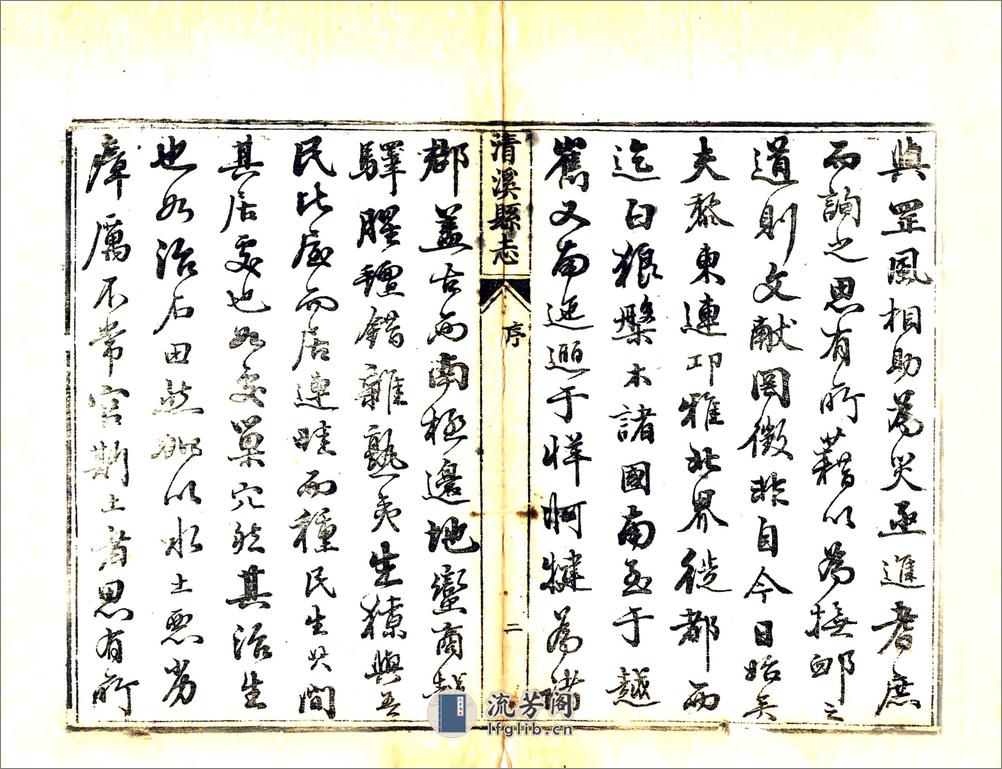 與罡風相助為災亟進耆庶
而詢之思有所藉以為撫卹之
道則文獻罔徵非自今日始矣
夫黎東連邛雅北界徙都西
迄白狼槃木諸國南至于越
嶲又南迤邐于牂牁犍為諸
清溪縣志
序
二
郡蓋古西南極邊地蠻商
驛腥羶錯雜熟夷生獠與吾
民比廬而居連畦而種民生其間
其居處也如處巢穴然其治生
也如治石田然加以水土惡劣
瘴厲不常官斯土者思有所
流芳阁
lfglib.cn